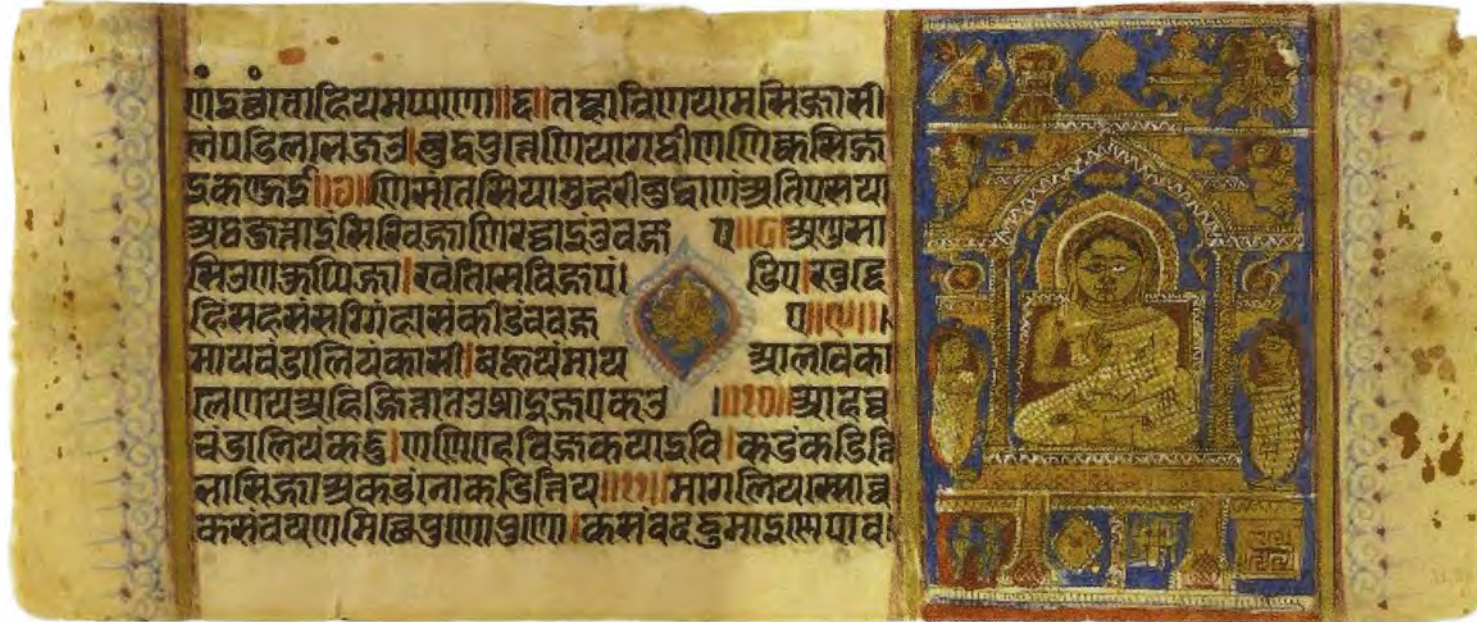 णंइच्छंतोहियमप्पणो॥६॥तम्हाविणयमेसिज्जासी
लंपडिलभेजउ।बुद्धपुत्तेणियागट्ठीणणिक्कसिज्ज
इकण्हुई॥७॥णिसंतेसियामुहरीबुद्धाणंअंतिएसया
अट्ठजुत्ताइंसिक्खिज्जाणिरट्ठाइंउवज्ज ए॥८॥अणुसा
सिउणकुप्पिज्जा।खंतिंसेविज्जपं। डिए।खुड्डे
हिंसहसंसग्गिंहासंकीडंचवज्ज ए॥९॥
मायचंडालियंकासी।बहुयंमाय आलवेका
लेणयअहिज्जित्तातउझाइज्जएकउ ॥१०॥आहच्च
चंडालियंकट्टु।णणिण्हविज्जकयाइवि।कडंकडित्ति
भासिज्जाअकडंनोकडित्तिय॥११॥मागलियस्सेव
कसंवयणमिच्छेपुणोपुणो।कसंवदट्ठुमाइण्णेपाव